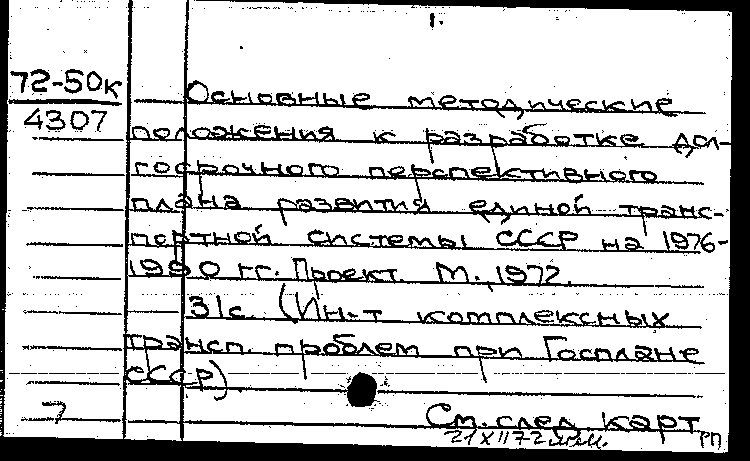 1.
72-50к
4307
Основные методические
положения к разработке дол-
госрочного перспективного
плана развития единой транс-
портной системы СССР на 1976-
1990 гг. Проект. М., 1972.
31с (Ин-т комплексных
трансп. проблем при Госплане
СССР).
7
См. след. карт
21 XII 72
РП